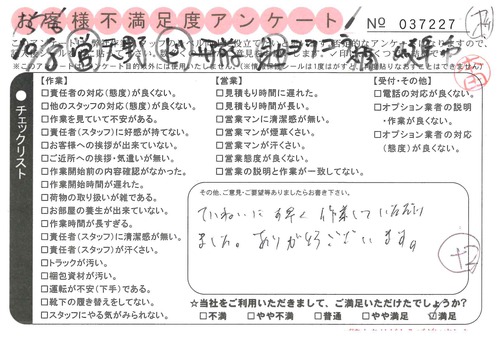 お客様不満足度アンケート
№ 037227
チェックリスト
【作業】
□責任者の対応(態度)が良くない。
□他のスタッフの対応(態度)が良くない。
□作業を見ていて不安がある。
□責任者(スタッフ)に好感が持てない。
□お客様への挨拶が出来ていない。
□ご近所への挨拶・気遣いが無い。
□作業開始前の内容確認がなかった。
□作業開始時間が遅れた。
□荷物の取り扱いが雑である。
□お部屋の養生が出来ていない。
□作業時間が長すぎる。
□責任者(スタッフ)に清潔感が無い。
□責任者(スタッフ)が汗くさい。
□トラックが汚い。
□梱包資材が汚い。
□運転が不安(下手)である。
□靴下の履き替えをしてない。
□スタッフにやる気がみられない。
【営業】
□見積もり時間に遅れた。
□見積もり時間が長い。
□営業マンに清潔感が無い。
□営業マンが煙草くさい。
□営業マンが汗くさい。
□営業態度が良くない。
□営業の説明と作業が一致してない。
【受付・その他】
□電話の対応が良くない。
□オプション業者の説明
・作業が良くない。
□オプション業者の対応
(態度)が良くない。
その他、ご意見・ご要望等ありましたらお書き下さい。
ていねいに早く作業していただき
ました。ありがとうございます。
☆当社をご利用いただきまして、ご満足いただけたでしょうか?
□不満 □やや不満 □普通 □やや満足 ☑満足